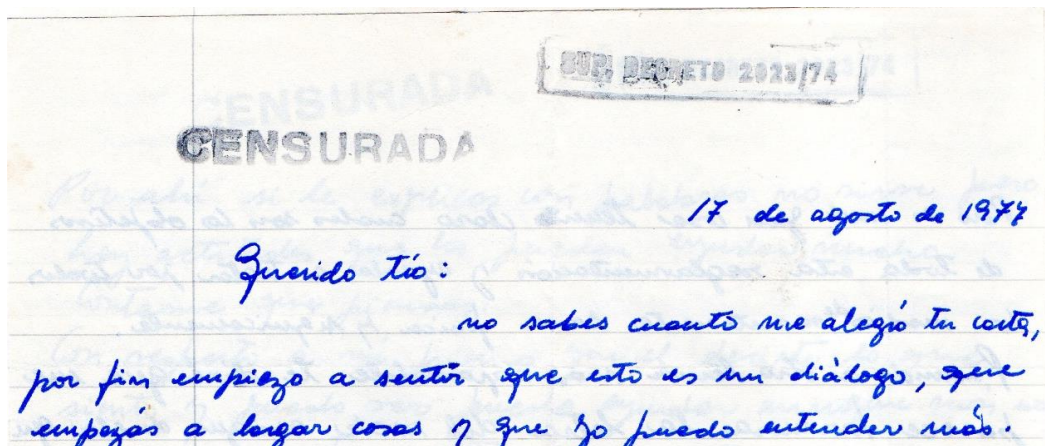 SUP. DECRETO 2023/74
CENSURADA
17 de agosto de 1977
Querido tío:
no sabes cuanto me alegró tu carta,
por fin empiezo a sentir que esto es un diálogo, que
empezás a largar cosas y que yo puedo entender más.